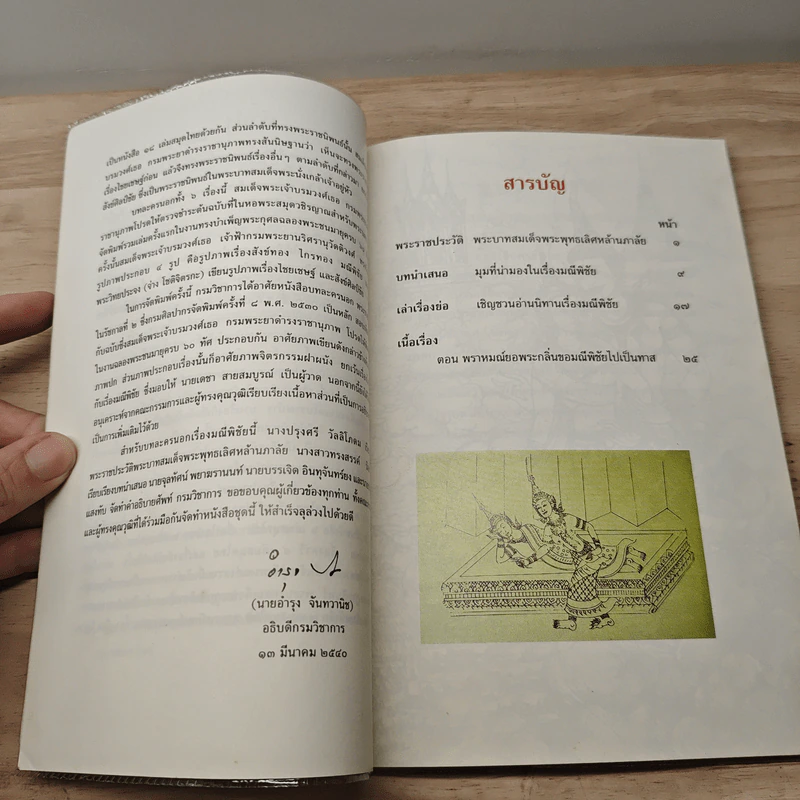 เป็นหนังสือ ๑๔ เล่มสมุดไทยด้วยกัน ส่วนลำดับที่ทรงพระราชนิพนธ์นั้น
บรมวงศ์เธอ กรมพระยาดำรงราชานุภาพทรงสันนิษฐานว่า
เรื่องไชยเชษฐ์ก่อน แล้วจึงทรงพระราชนิพนธ์เรื่องอื่นๆ ตามลำดับที่กล่าวมา
สังข์ศิลป์ชัย ซึ่งเป็นพระราชนิพนธ์ในพระบาทสมเด็จพระนั่งเกล้าเจ้าอยู่หัว
บทละครนอกทั้ง ๖ เรื่องนี้ สมเด็จพระเจ้าบรมวงศ์เธอ
ราชานุภาพโปรดให้ตรวจชำระต้นฉบับที่ในหอพระสมุดวชิรญาณสำหรับพระนคร
จัดพิมพ์รวมเล่มครั้งแรกในงานทรงบำเพ็ญพระกุศลฉลองพระชนมายุครบ
ครั้งนั้นสมเด็จพระเจ้าบรมวงศ์เธอ เจ้าฟ้ากรมพระยานริศรานุวัดติวงศ์
รูปภาพประกอบ ๔ รูป คือรูปภาพเรื่องสังข์ทอง ไกรทอง มณีพิชัย
พระวิทยประจง (จ่าง โชติจิตรกะ) เขียนรูปภาพเรื่องไชยเชษฐ์ และสังข์ศิลป์ชัย
ในการจัดพิมพ์ครั้งนี้ กรมวิชาการได้อาศัยหนังสือบทละครนอก
ในรัชกาลที่ ๒ ซึ่งกรมศิลปากรจัดพิมพ์ครั้งที่ ๘ พ.ศ. ๒๕๓๐ เป็นหลัก
กับฉบับซึ่งสมเด็จพระเจ้าบรมวงศ์เธอ กรมพระยาดำรงราชานุภาพ
ในงานฉลองพระชนมายุครบ ๖๐ ทัศ ประกอบกัน อาศัยภาพเขียนดังกล่าวข้างต้น
ภาพปก ส่วนภาพประกอบเรื่องนั้นก็อาศัยภาพจิตรกรรมฝาผนัง
กับเรื่องมณีพิชัย ซึ่งมอบให้ นายเดชา สายสมบูรณ์ เป็นผู้วาด นอกจากนี้
อนุเคราะห์จากคณะกรรมการและผู้ทรงคุณวุฒิเรียบเรียงเนื้อหาส่วนที่เป็นการ
เป็นการเพิ่มเติมไว้ด้วย
สำหรับบทละครนอกเรื่องมณีพิชัยนี้ นางปรุงศรี วัลลิโภดม
พระราชประวัติพระบาทสมเด็จพระพุทธเลิศหล้านภาลัย นางสาวทรงสรรค์
เรียบเรียงบทนำเสนอ นายจุลทัศน์ พยาฆรานนท์ นายบรรเจิด อินทุจันทร์ยง
แสงทับ จัดทำคำอธิบายศัพท์ กรมวิชาการ ขอขอบคุณผู้เกี่ยวข้องทุกท่าน
และผู้ทรงคุณวุฒิที่ได้ร่วมมือกันจัดทำหนังสือชุดนี้ ให้สำเร็จลุล่วงไปด้วยดี
(นายอำรุง จันทวานิช)
อธิบดีกรมวิชาการ
๑๓ มีนาคม ๒๕๔๐
สารบัญ
หน้า
พระราชประวัติ พระบาทสมเด็จพระพุทธเลิศหล้านภาลัย ๑
บทนำเสนอ มุมที่น่ามองในเรื่องมณีพิชัย ๙
เล่าเรื่องย่อ เชิญชวนอ่านนิทานเรื่องมณีพิชัย ๑๗
เนื้อเรื่อง
ตอน พราหมณ์ยอพระกลิ่นขอมณีพิชัยไปเป็นทาส ๒๕